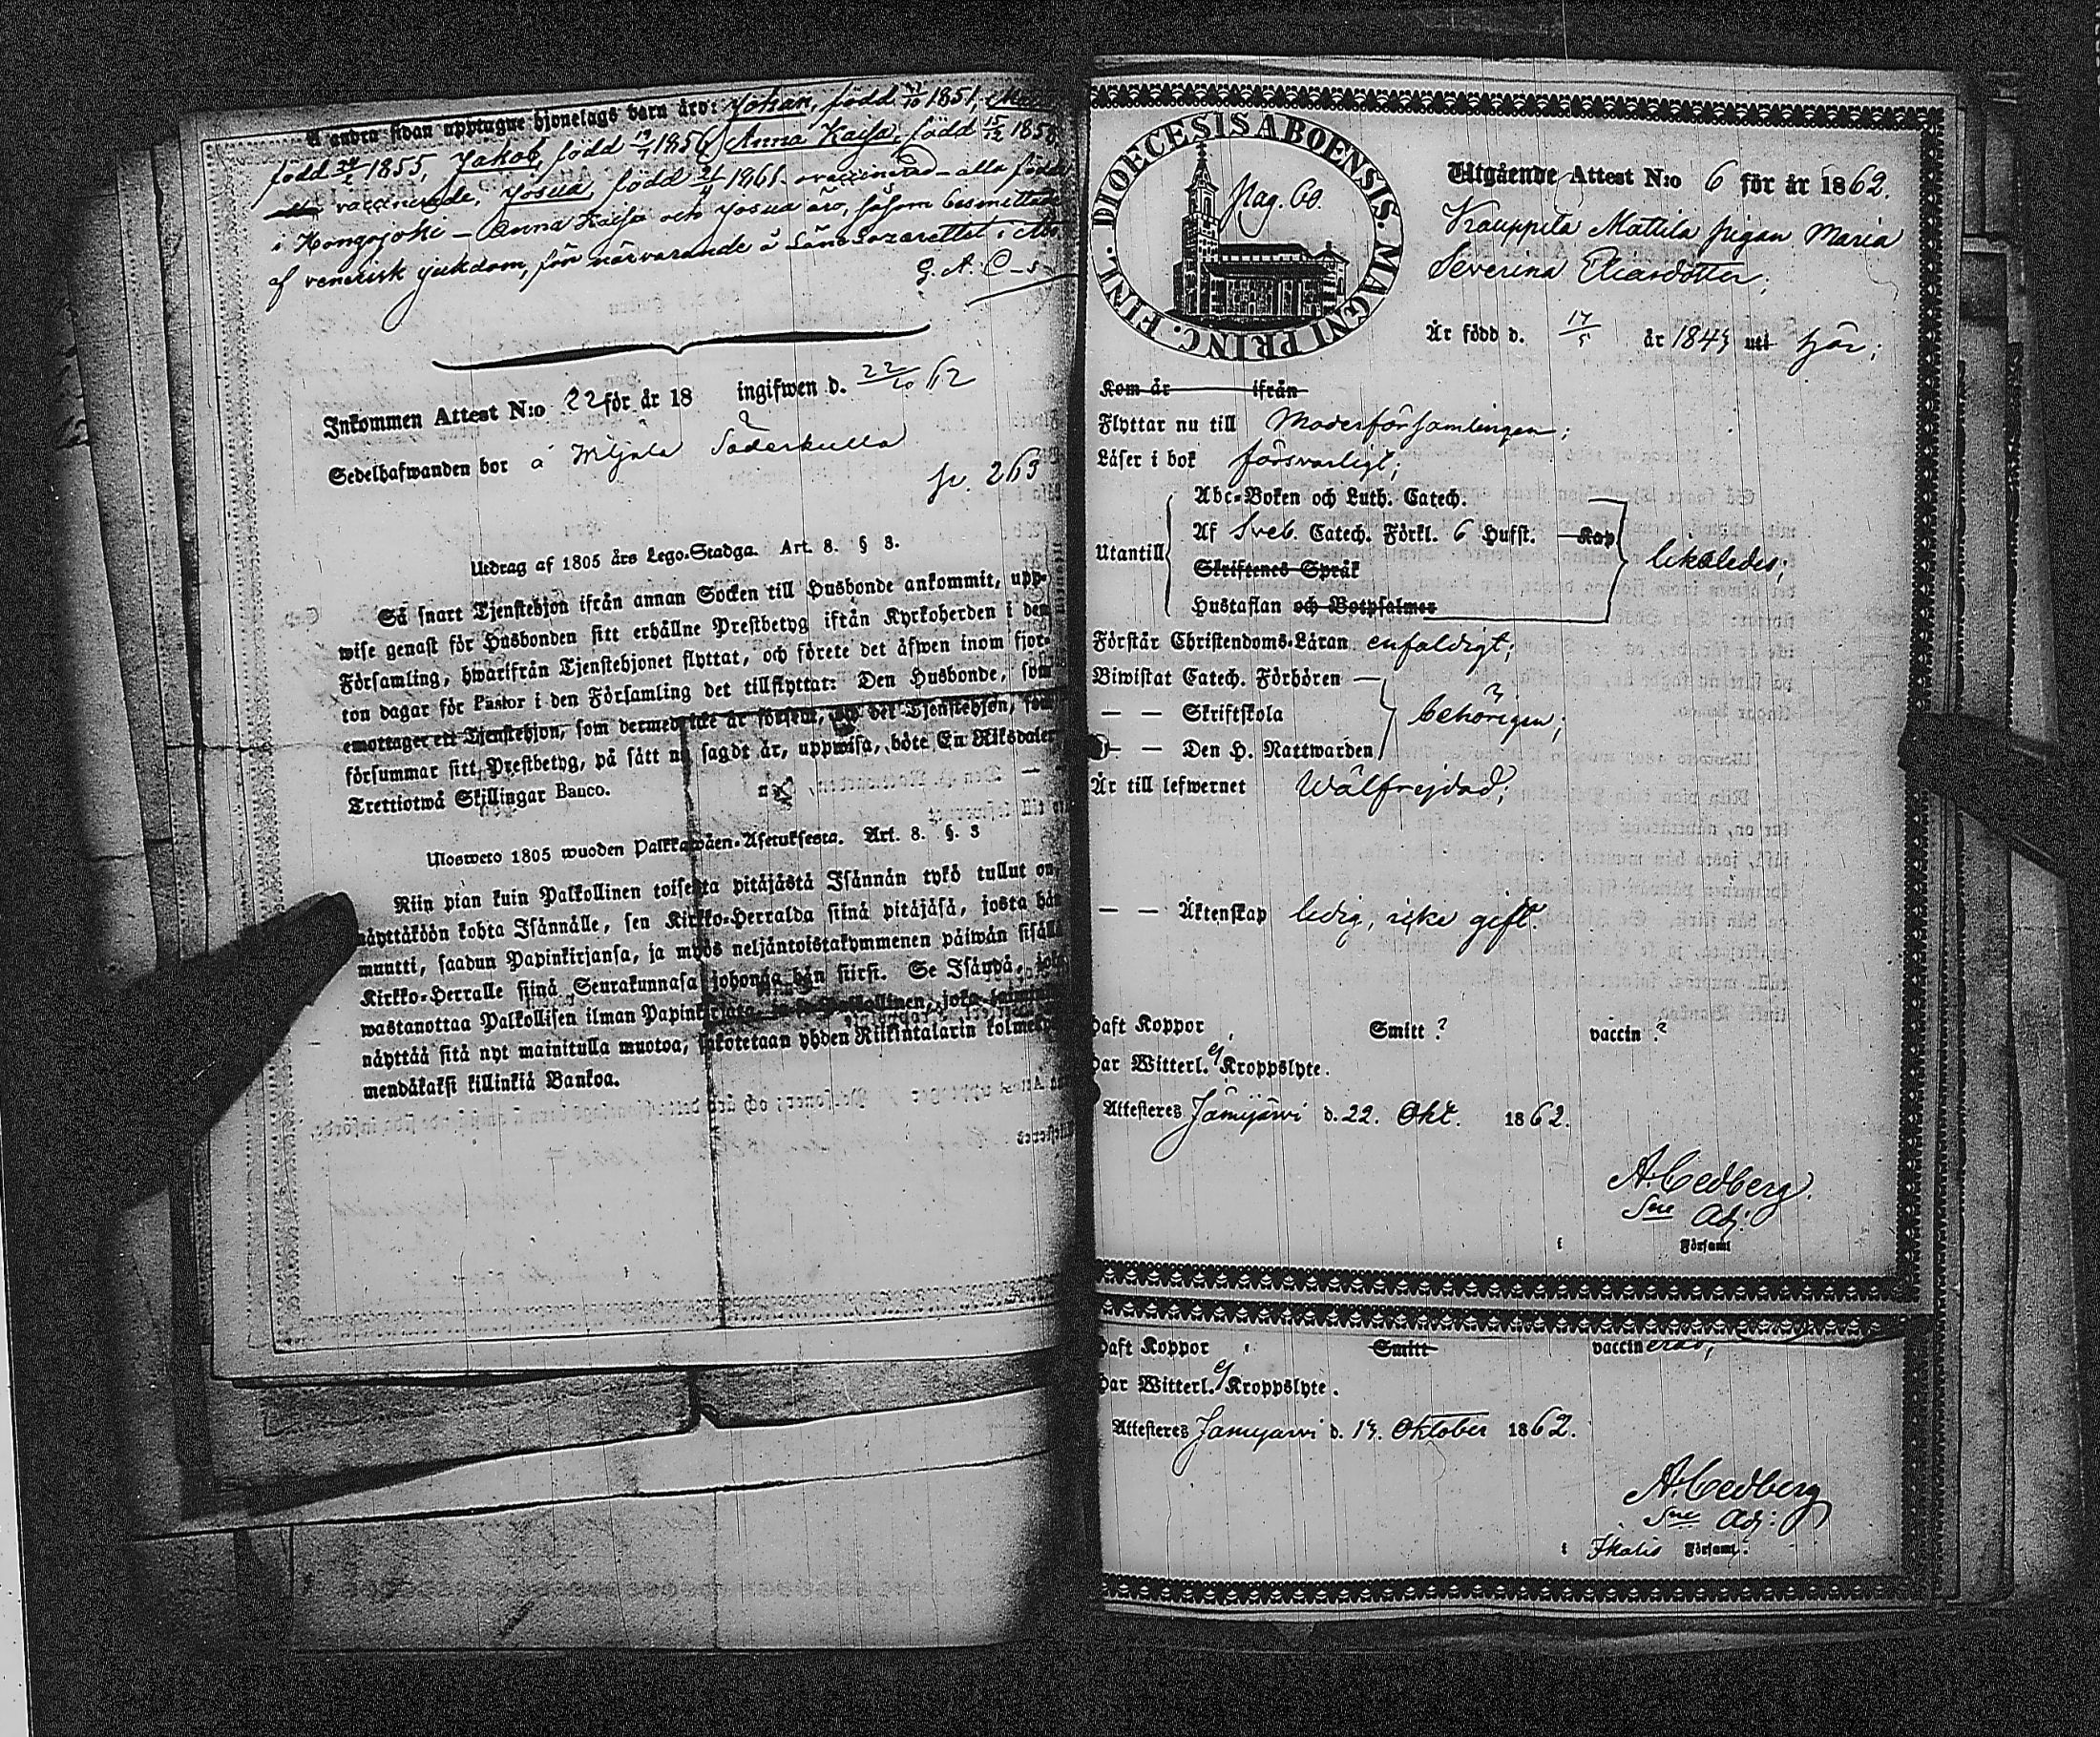 Å andra sidan upptagne hjonelags barn äro: Johan, född 27/10 1851,
född 1855, Jakob, född 19/7 1856, Anna Kaisa, född 15/12 1858
vaccinerade, Josua, född 21/4 1861 ovaccinerad – alla födde
i Hongojoki – Anna Kaisa och Josua äro, såsom besmittade
af venerisk sjukdom, för närvarande å Läns Lazarettet i Åbo
G. A. C–s
Inkommen Attest N:o 22 för år 18 ingifwen d. 22/10 62
Sedelhafwanden bor å Miljola Söderkulla
p. 263
Utdrag af 1805 års Lego-Stadga. Art. 8. § 3.
Så snart Tjenstehjon ifrån annan Socken till Husbonde ankommit, upp-
wise genast för Husbonden sitt erhållne Prestbetyg ifrån Kyrkoherden i den
Församling, hwarifrån Tjenstehjonet flyttat, och förete det äfwen inom fjor-
ton dagar för Pastor i den Församling det tillflyttat: Den Husbonde, som
emottager ett Tjenstehjon, som dermed icke är försedt, och det Tjenstehjon, som
försummar sitt Prestbetyg, på sätt nu sagdt är, uppwisa, böte En Riksdaler
Trettiotwå Skillingar Banco.
Ulosweto 1805 wuoden Palkkawäen-Asetuksesta. Art. 8. §. 3
Niin pian kuin Palkollinen toisesta pitäjästä Isännän tykö tullut on,
näyttäköön kohta Isännälle, sen Kirkko-Herralda siinä pitäjäsä, josta hän
muutti, saadun Papinkirjansa, ja myös neljäntoistakymmenen päiwän sisällä
Kirkko-Herralle siinä Seurakunnasa johonga hän siirsi. Se Isändä, joka
wastanottaa Palkollisen ilman Papinkirjata, ja se Palkollinen, joka laimin
näyttää sitä nyt mainitulla muotoa, sakotetaan yhden Riikintalarin kolmeky
mendäkaksi killinkiä Bankoa.
DIOECESIS ABOENSIS. MAGNI PRINC. FINL.
Pag. 60.
Utgående Attest N:o 6 för år 1862.
Kauppila Mattila pigan Maria
Severina
Är född d. 17/5 år 1843 uti här;
Kom år ifrån
Flyttar nu till Moderförsamlingen;
Läser i bok försvarligt;
Abc-Boken och Luth. Catech.
Utantill Af Sveb. Catech. Förkl. 6 Hufst. Kap likaledes;
Skriftenes Språk
Hustaflan och Botpsalmer
Förstår Christendoms-Läran enfaldigt;
Biwistat Catech. Förhören
— — Skriftskola behörigen;
— — Den H. Nattwarden
Är till lefwernet Wälfrejdad;
— — Äktenskap ledig, icke gift.
Haft Koppor , Smitt ? vaccin ?
Har Witterl. ej Kroppslyte.
Attesteres Jämijärvi d. 22. Okt. 1862.
A Cedberg.
Sne Adj:
i Församl
Haft Koppor , Smitt vaccinerad,
Har Witterl. ej Kroppslyte.
Attesteres Jämijärvi d. 13. Oktober 1862.
A Cedberg
Sne Adj:
i Ikalis Församl.